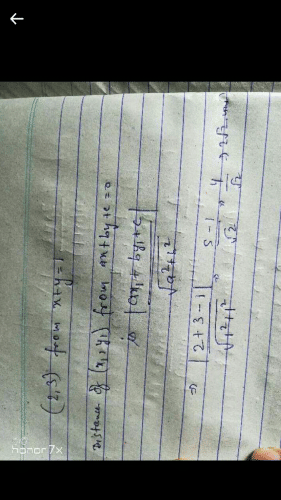 (2,3) from x+y=1
Distance of (x₁,y₁) from ax+by+c=0
is |ax₁+by₁+c| / √a²+b²
⇒ |2+3-1| / √1²+1² ⇒ 5-1 / √2 ⇒ 4 / √2 ⇒ 2√2
honor 7x